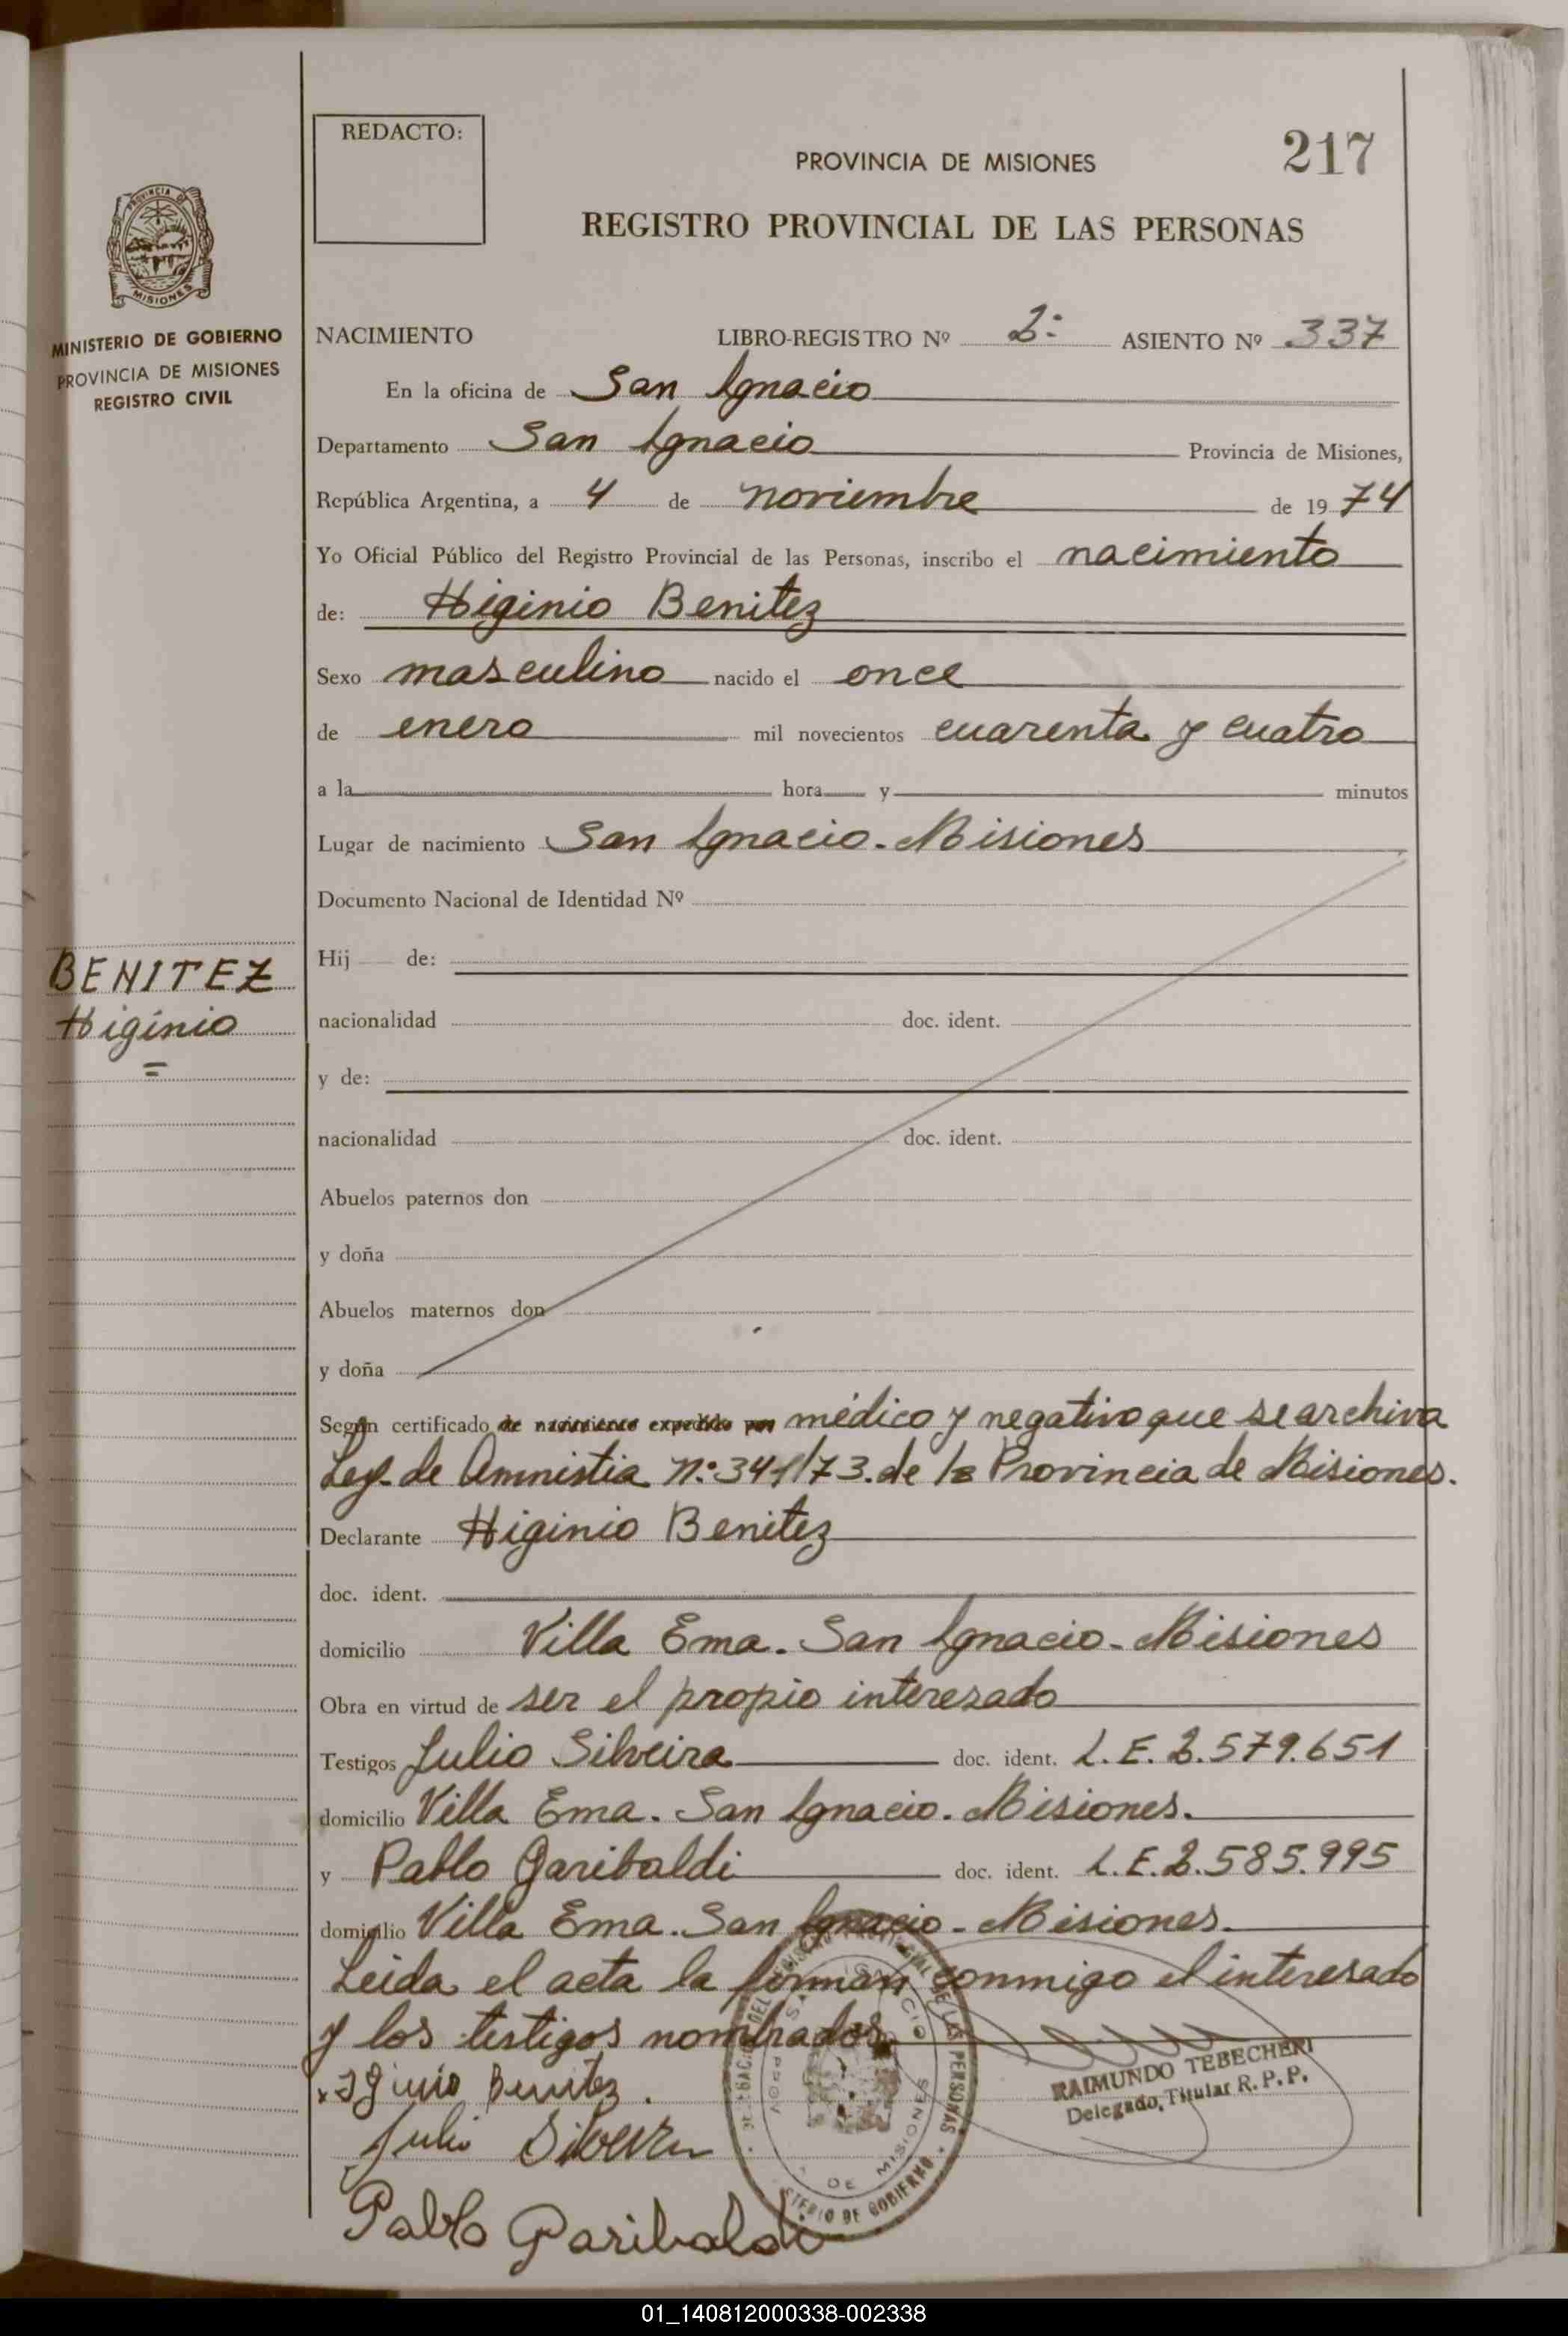 REDACTO:
217
PROVINCIA DE MISIONES
REGISTRO PROVINCIAL DE LAS PERSONAS
PROVINCIA DE
MISIONES
MINISTERIO DE GOBIERNO
PROVINCIA DE MISIONES
REGISTRO CIVIL
NACIMIENTO LIBRO-REGISTRO Nº 2: ASIENTO Nº 337
En la oficina de San Ignacio
Departamento San Ignacio Provincia de Misiones,
República Argentina, a 4 de noviembre de 1974
Yo Oficial Público del Registro Provincial de las Personas, inscribo el nacimiento
de: Higinio Benitez
Sexo masculino nacido el once
de enero mil novecientos cuarenta y cuatro
a la hora y minutos
Lugar de nacimiento San Ignacio. Misiones
Documento Nacional de Identidad Nº
Hij de:
BENITEZ
Higinio
nacionalidad doc. ident.
y de:
nacionalidad doc. ident.
Abuelos paternos don
y doña
Abuelos maternos don
y doña
Según certificado de nacimiento expedido por médico y negativo que se archiva
Ley de Amnistia N.º 341/73. de la Provincia de Misiones.
Declarante Higinio Benitez
doc. ident.
domicilio Villa Ema. San Ignacio - Misiones
Obra en virtud de ser el propio interesado
Testigos Julio Silveira doc. ident. L.E. 2.579.651
domicilio Villa Ema. San Ignacio. Misiones.
y Pablo Garibaldi doc. ident. L.E. 2.585.995
domicilio Villa Ema. San Ignacio - Misiones.
Leida el acta la firman conmigo el interesado
y los testigos nombrados
x Iginio Benitez.
Julio Silveira
Pablo Garibaldi
RAIMUNDO TEBECHERI
Delegado Titular R. P. P.
DE LAS PERSONAS
DE MISIONES
DE GOBIERNO
01_140812000338-002338